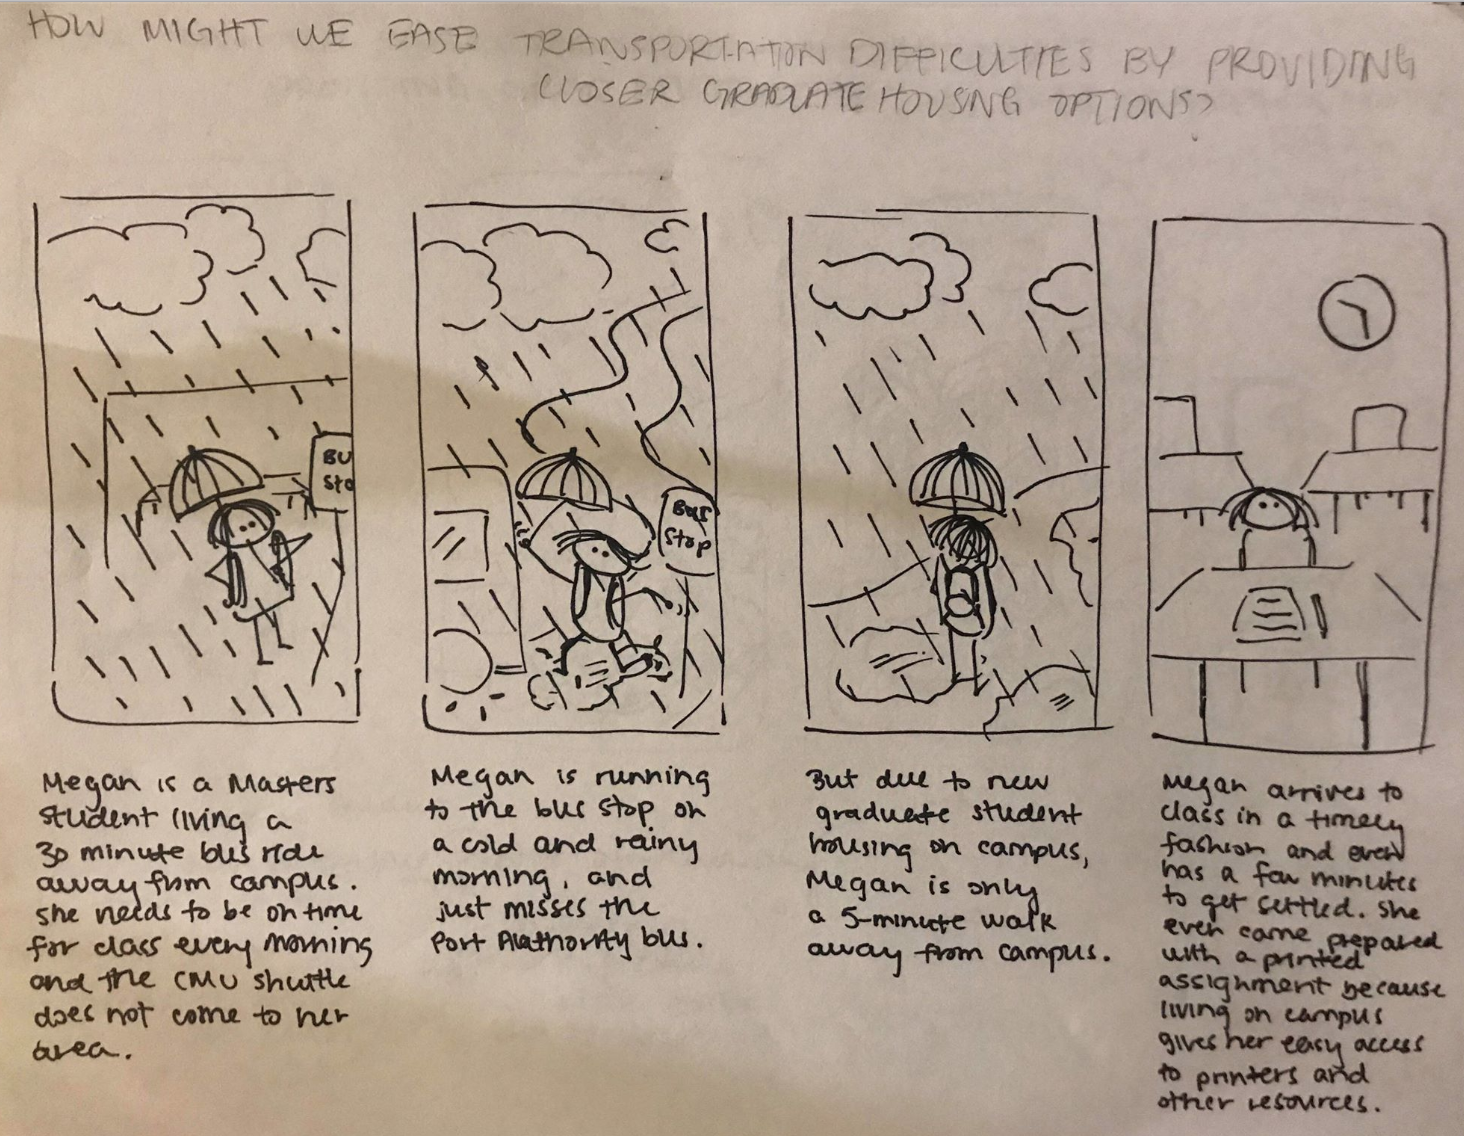 HOW MIGHT WE EASE TRANSPORTATION DIFFICULTIES BY PROVIDING
CLOSER GRADUATE HOUSING OPTIONS?
BU
Sto
Bus
Stop
Megan is a Masters
student living a
30 minute bus ride
away from campus.
She needs to be on time
for class every morning
and the CMU shuttle
does not come to her
area.
Megan is running
to the bus stop on
a cold and rainy
morning, and
just misses the
Port Authority bus.
But due to new
graduate student
housing on campus,
Megan is only
a 5-minute walk
away from campus.
Megan arrives to
class in a timely
fashion and even
has a few minutes
to get settled. She
even came prepared
with a printed
assignment because
living on campus
gives her easy access
to printers and
other resources.